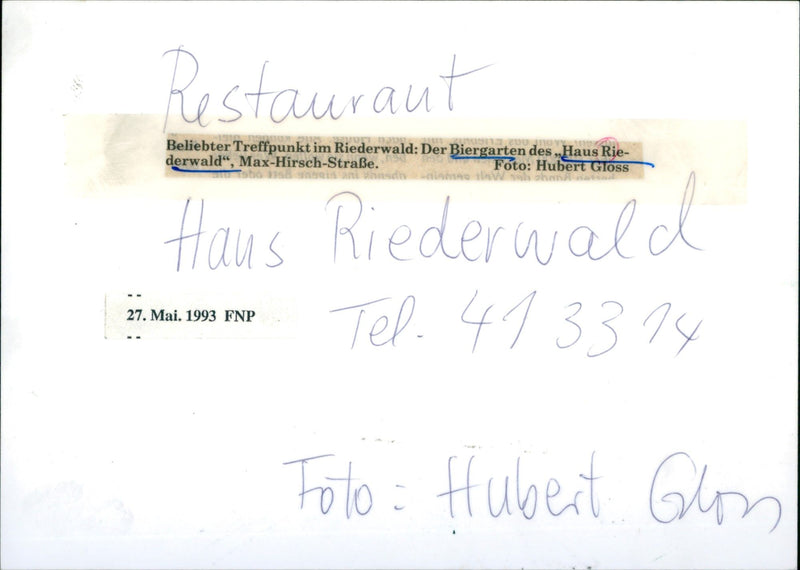 Restaurant
Beliebter Treffpunkt im Riederwald: Der Biergarten des „Haus Rie-
derwald“, Max-Hirsch-Straße. Foto: Hubert Gloss
Haus Riederwald
27. Mai. 1993 FNP
Tel. 41 33 14
Foto: Hubert Gloss